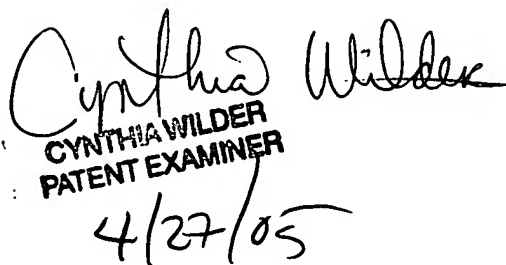 Cynthia Wilder
CYNTHIA WILDER
PATENT EXAMINER
4/27/05